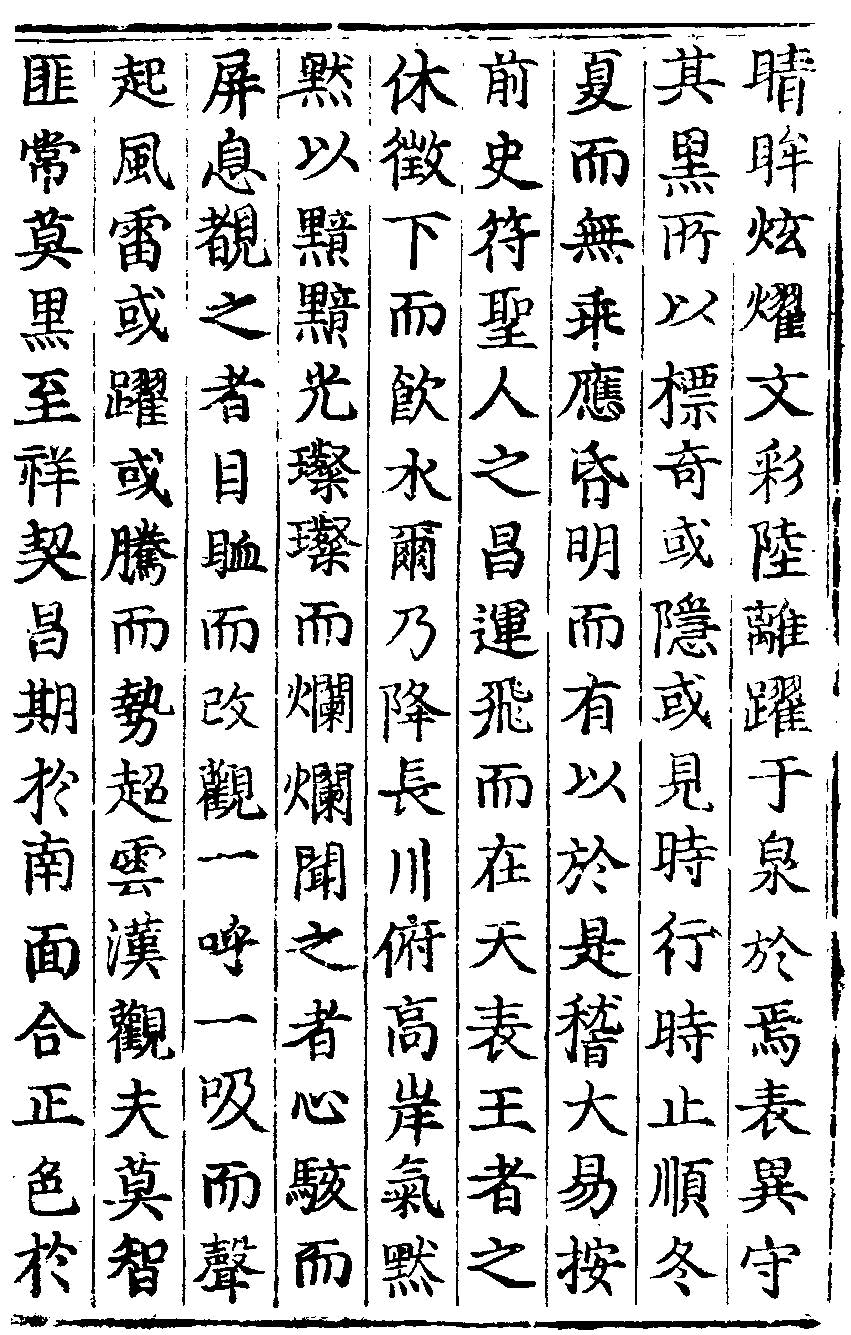 晴眸炫燿文彩陸離躍于泉於焉表異守
其黒所以標奇或隱或見時行時止順冬
夏而無乖應昏明而有以於是稽大易按
前史符聖人之昌運飛而在天表王者之
休徴下而飲水爾乃降長川俯高岸氣黙
黙以黯黯光璨璨而爛爛聞之者心駭而
屏息覩之者目䀋而改觀一呼一吸而聲
起風雷或躍或騰而勢超雲漢觀夫莫智
匪常莫黒至祥契昌期於南面合正色於